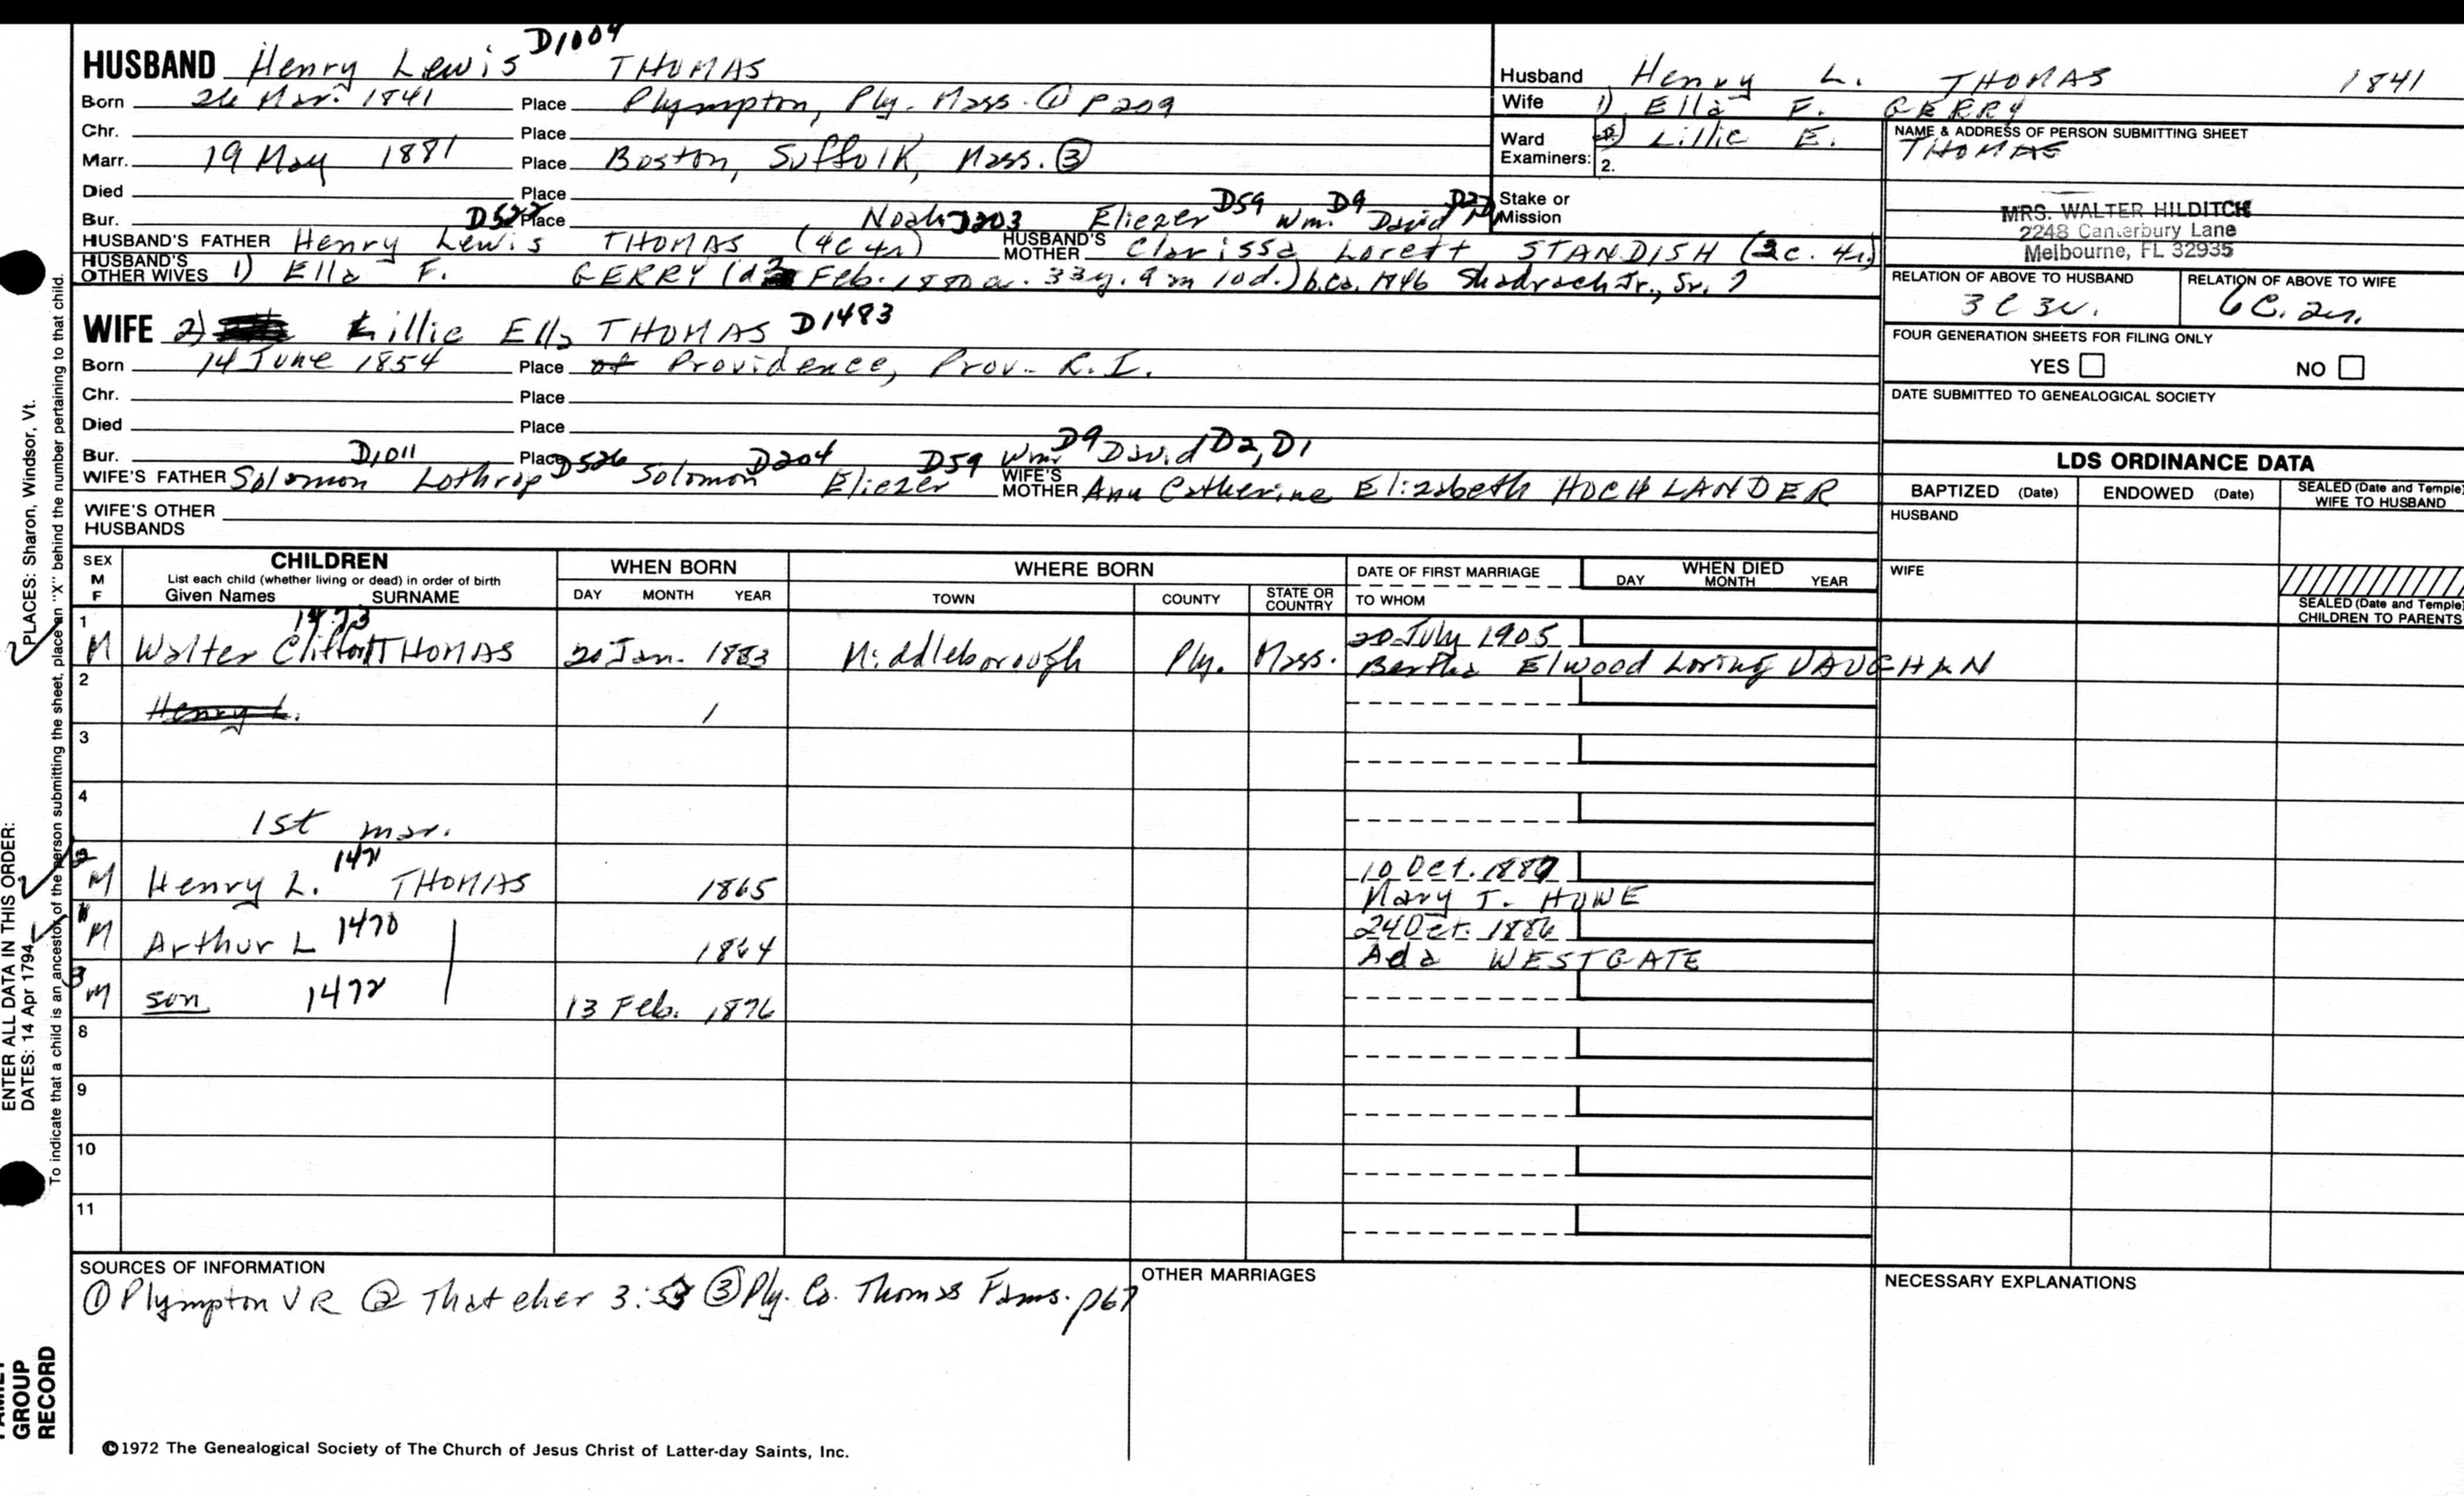 D1004
HUSBAND Henry Lewis THOMAS
Born 26 Mar. 1841 Place Plympton, Ply. Mass. ① p209
Chr. Place
Marr. 19 May 1881 Place Boston, Suffolk, Mass. ③
Died Place
Bur. D522 Place Noah D203 Eliezer D59 Wm. D9 David
HUSBAND'S FATHER Henry Lewis THOMAS (4c4r) HUSBAND'S MOTHER Clarissa Lorett STANDISH (3c. 4r.)
HUSBAND'S OTHER WIVES 1) Ella F. GERRY (d. Feb. 1880 a. 33y. 9m 10d.) b.ca. 1846 Shadrach Jr., Sr. ?
WIFE 2) Lillie Ella THOMAS D1483
Born 14 June 1854 Place of Providence, Prov. R.I.
Chr. Place
Died Place
Bur. D1011 Place D526 D204 D59 Wm. D9 David D2, D1
WIFE'S FATHER Solomon Lothrop Solomon Eliezer WIFE'S MOTHER Ann Catherine Elizabeth HOCHLANDER
WIFE'S OTHER HUSBANDS
Husband Henry L. THOMAS 1841
Wife 1) Ella F. GERRY
Ward Examiners: Lillie E. THOMAS
2.
Stake or Mission
NAME & ADDRESS OF PERSON SUBMITTING SHEET
MRS. WALTER HILDITCH
2248 Canterbury Lane
Melbourne, FL 32935
RELATION OF ABOVE TO HUSBAND RELATION OF ABOVE TO WIFE
3C 3r. 6C. 2r.
FOUR GENERATION SHEETS FOR FILING ONLY
YES NO
DATE SUBMITTED TO GENEALOGICAL SOCIETY
LDS ORDINANCE DATA
BAPTIZED (Date) ENDOWED (Date) SEALED (Date and Temple) WIFE TO HUSBAND
HUSBAND
WIFE
SEALED (Date and Temple) CHILDREN TO PARENTS
SEX M F CHILDREN WHEN BORN WHERE BORN DATE OF FIRST MARRIAGE WHEN DIED
List each child (whether living or dead) in order of birth
Given Names SURNAME DAY MONTH YEAR TOWN COUNTY STATE OR COUNTRY TO WHOM DAY MONTH YEAR
1 1473 20 July 1905
M Walter Clifton THOMAS 20 Jan. 1883 Middleborough Ply. Mass. Bertha Elwood Loring VAUGHAN
2
Henry L. 1
3
4
1st mar.
2 1471 10 Oct. 1887
M Henry L. THOMAS 1865 Mary J. HOWE
1 24 Oct. 1886
M Arthur L 1470 1864 Ada WESTGATE
3
M son 1472 13 Feb. 1876
8
9
10
11
SOURCES OF INFORMATION
① Plympton VR ② Thatcher 3:53 ③ Ply. Co. Thomas Fams. p67
OTHER MARRIAGES
NECESSARY EXPLANATIONS
©1972 The Genealogical Society of The Church of Jesus Christ of Latter-day Saints, Inc.
ENTER ALL DATA IN THIS ORDER:
DATES: 14 Apr 1794 PLACES: Sharon, Windsor, Vt.
To indicate that a child is an ancestor of the person submitting the sheet, place an "X" behind the number pertaining to that child.
GROUP
RECORD